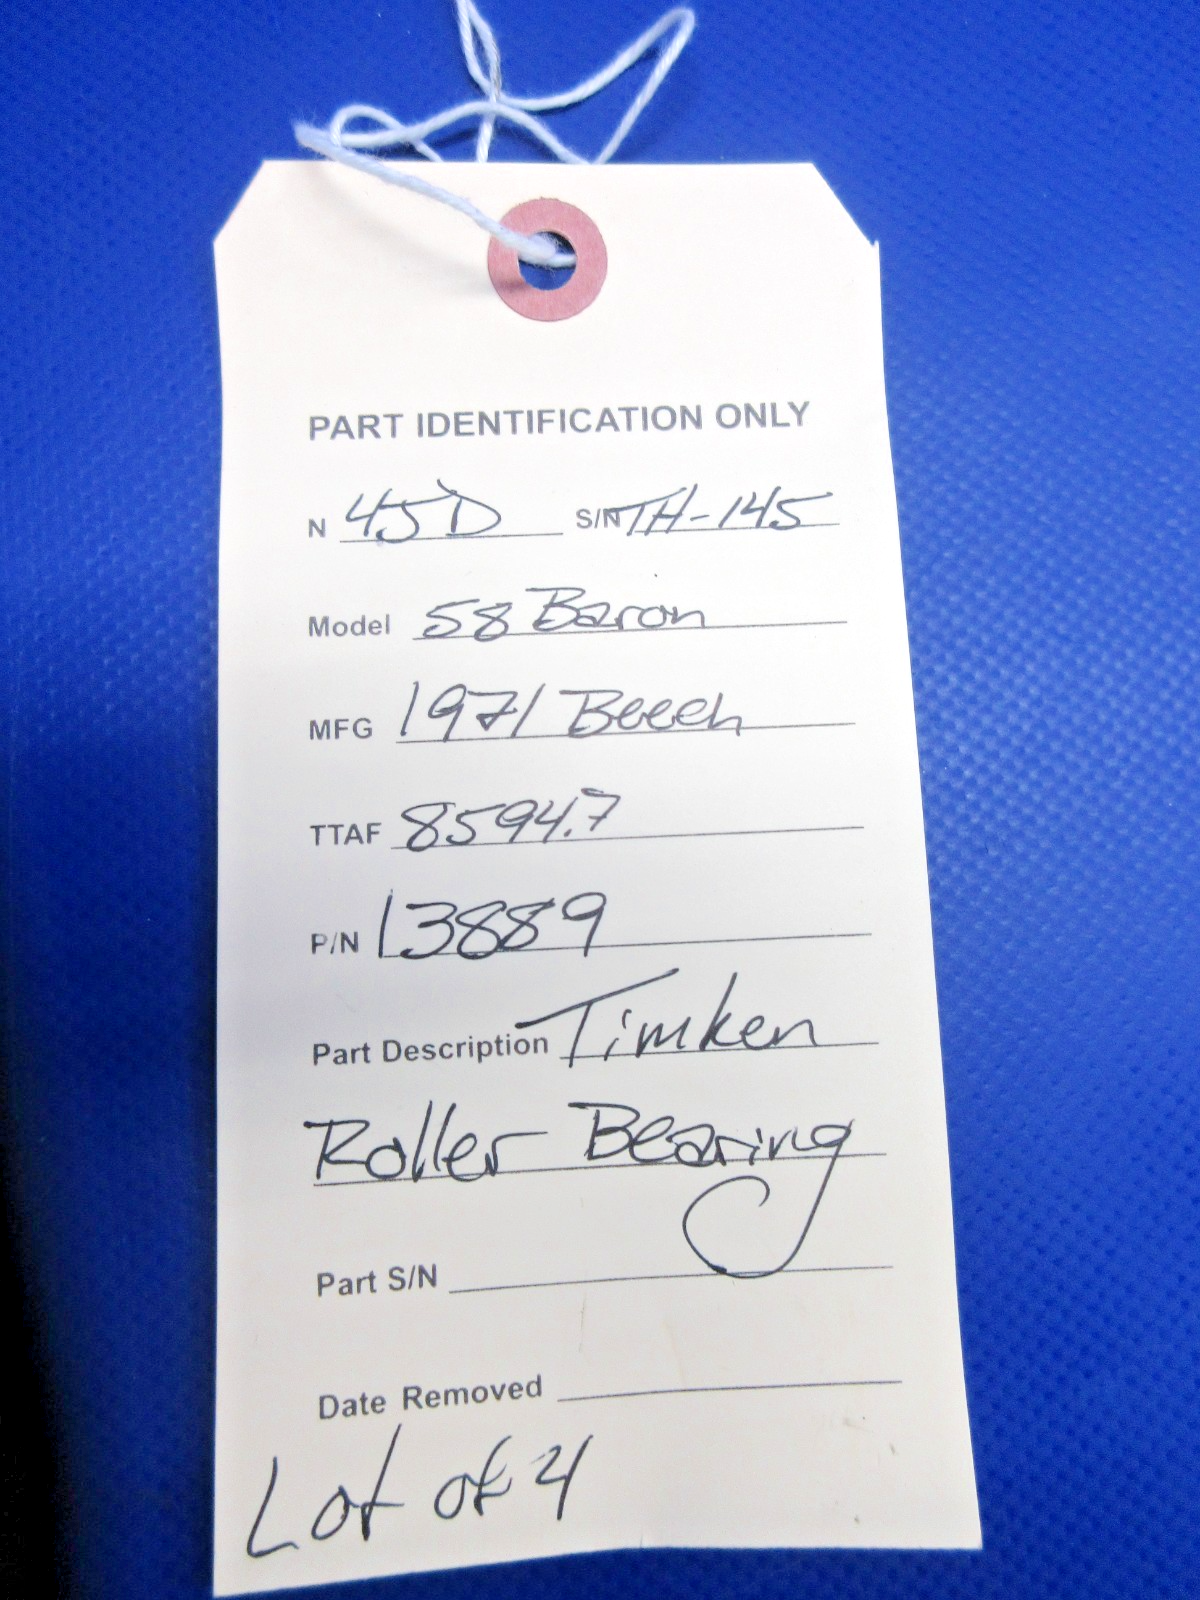 PART IDENTIFICATION ONLY
N 45D S/N TH-145
Model 58 Baron
MFG 1971 Beech
TTAF 8594.7
P/N 13889
Part Description Timken
Roller Bearing
Part S/N
Date Removed
Lot of 4